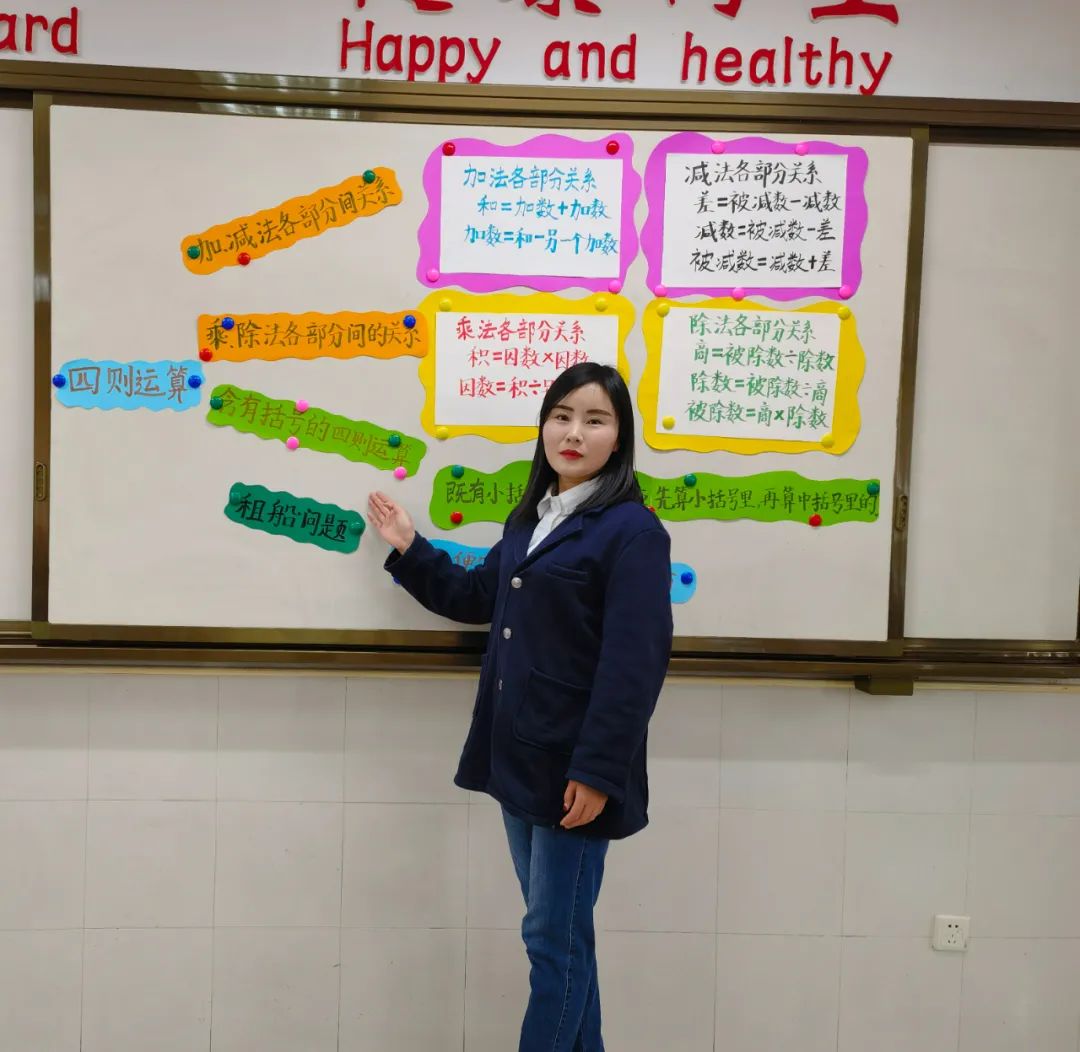 ard
Happy and healthy
加、减法各部分间关系
加法各部分关系
和=加数+加数
加数=和-另一个加数
减法各部分关系
差=被减数-减数
减数=被减数-差
被减数=减数+差
四则运算
乘、除法各部分间的关系
乘法各部分关系
积=因数×因数
因数=积÷
除法各部分关系
商=被除数÷除数
除数=被除数÷商
被除数=商×除数
含有括号的四则运算
既有小括 先算小括号里,再算中括号里的
租船问题